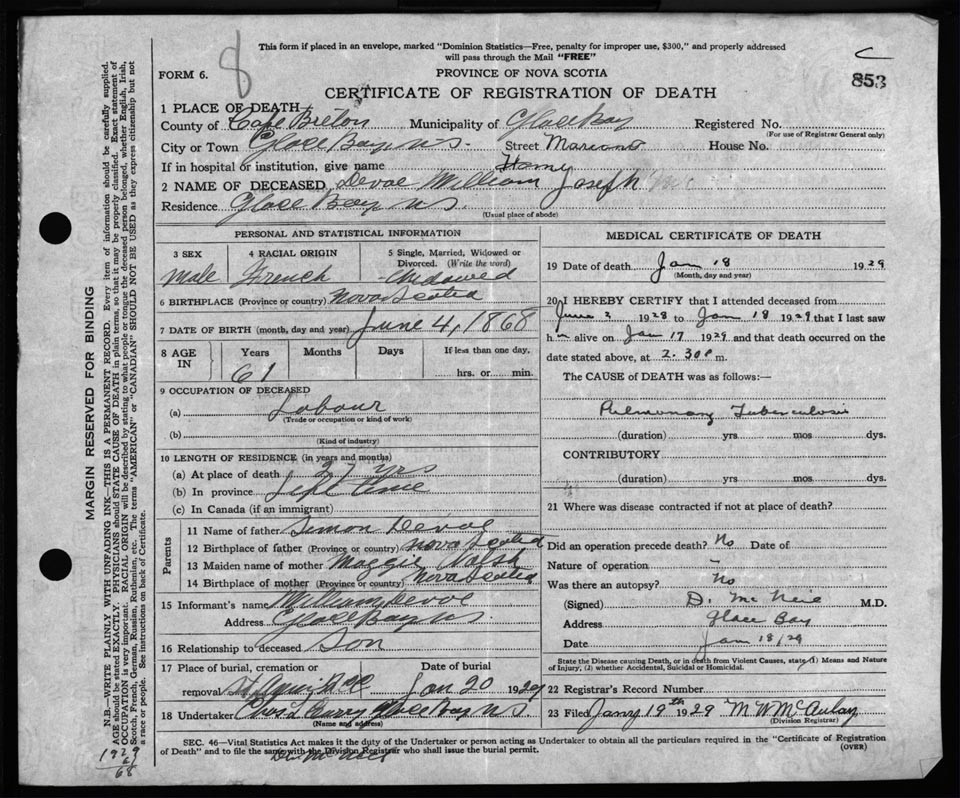 This form if placed in an envelope, marked "Dominion Statistics—Free, penalty for improper use, $300," and properly addressed
will pass through the Mail "FREE"
8
C
853
FORM 6.
PROVINCE OF NOVA SCOTIA
CERTIFICATE OF REGISTRATION OF DEATH
1 PLACE OF DEATH
County of Cape Breton Municipality of Glace Bay Registered No.
(For use of Registrar General only)
City or Town Glace Bay N.S. Street House No.
If in hospital or institution, give name
2 NAME OF DECEASED Devoe William Joseph
Residence Glace Bay N.S.
(Usual place of abode)
PERSONAL AND STATISTICAL INFORMATION
3 SEX 4 RACIAL ORIGIN 5 Single, Married, Widowed or Divorced. (Write the word)
Male French Widowed
6 BIRTHPLACE (Province or country) Nova Scotia
7 DATE OF BIRTH (month, day and year) June 4, 1868
8 AGE IN Years Months Days If less than one day,
61 hrs. or min.
9 OCCUPATION OF DECEASED
(a) Labour
(Trade or occupation or kind of work)
(b)
(Kind of industry)
10 LENGTH OF RESIDENCE (in years and months)
(a) At place of death 27 yrs
(b) In province Life time
(c) In Canada (if an immigrant)
Parents
11 Name of father Simon Devoe
12 Birthplace of father (Province or country) Nova Scotia
13 Maiden name of mother Maggie
14 Birthplace of mother (Province or country) Nova Scotia
15 Informant's name William Devoe
Address Glace Bay N.S.
16 Relationship to deceased Son
17 Place of burial, cremation or Date of burial
removal Jan 20 1929
18 Undertaker Curry Glace Bay N S
(Name and address)
MEDICAL CERTIFICATE OF DEATH
19 Date of death Jan 18 1929
(Month, day and year)
20 I HEREBY CERTIFY that I attended deceased from
June 2 1928 to Jan 18 1929 that I last saw
h m alive on Jan 17 1929 and that death occurred on the
date stated above, at 2.30 p m.
The CAUSE of DEATH was as follows:—
Pulmonary Tuberculosis
(duration) yrs mos dys.
CONTRIBUTORY
(duration) yrs. mos dys.
21 Where was disease contracted if not at place of death?
Did an operation precede death? No Date of
Nature of operation
Was there an autopsy? No
(Signed) D. McNeil M.D.
Address Glace Bay
Date Jan 18/29
State the Disease causing Death, or in death from Violent Causes, state (1) Means and Nature
of Injury, (2) whether Accidental, Suicidal or Homicidal.
22 Registrar's Record Number
23 Filed Jany 19th 1929 M W McAulay
(Division Registrar)
SEC. 46—Vital Statistics Act makes it the duty of the Undertaker or person acting as Undertaker to obtain all the particulars required in the "Certificate of Registration
of Death" and to file the same with the Division Registrar who shall issue the burial permit.
(OVER)
Dr McNeil
MARGIN RESERVED FOR BINDING
N.B.—WRITE PLAINLY WITH UNFADING INK—THIS IS A PERMANENT RECORD. Every item of information should be carefully supplied.
AGE should be stated EXACTLY. PHYSICIANS should STATE CAUSE OF DEATH in plain terms, so that it may be properly classified. Exact statement of
OCCUPATION is very important. RACIAL ORIGIN will be described by stating to what people or tongue the deceased person belonged, whether English, Irish,
Scotch, French, German, Russian, Ruthenian, etc. The terms "AMERICAN" or "CANADIAN" SHOULD NOT BE USED as they express citizenship but not
a race or people. See instructions on back of Certificate.